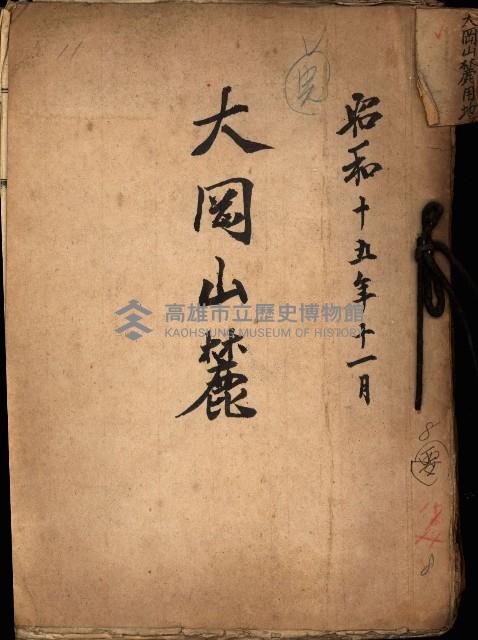 大岡山麓用地
昭和十五年十一月
大岡山麓
高雄市立歷史博物館
KAOHSIUNG MUSEUM OF HISTORY
11
8
8